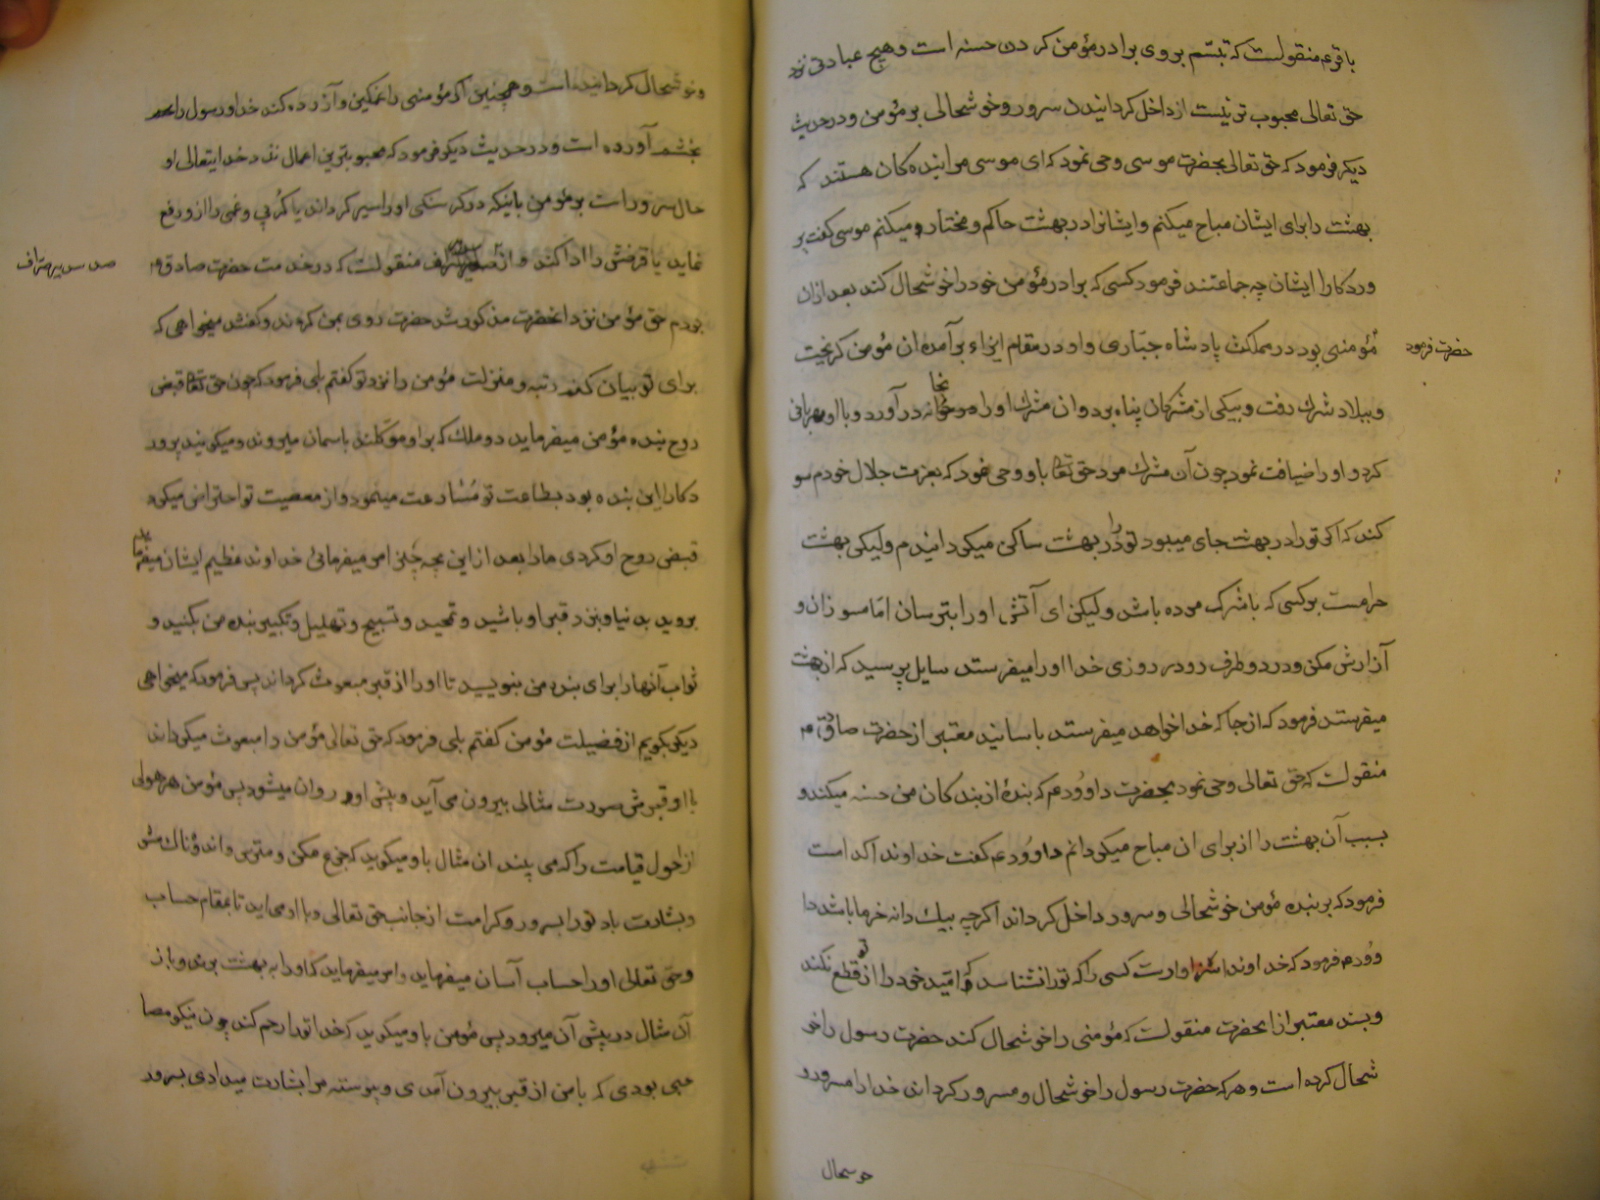 باقرع منقولست که تبسّم بروی برادر مؤمن کردن حسنه است و هیچ عبادتی نزد
حق تعالی محبوب تر نیست از داخل کردانیدن سرور و خوشحالی بر مؤمن و در حدیث
دیکر فرمود که حق تعالی بحضرت موسی وحی نمود که ای موسی مرا بنده کان هستند که
بهشت را برای ایشان مباح میکنم و ایشانرا در بهشت حاکم و مختار میکنم موسی کفت پر
وردکارا ایشان چه جماعتند فرمود کسی که برادر مؤمن خود را خوشحال کند بعد ازان
حضرت فرمود
مؤمنی بود در مملکت پادشاه جبّاری و او در مقام ایزاء برآمده ان مؤمن کریخت
و ببلاد شرك رفت و بیکی از مشرکان پناه برد و ان مشرك او را بخانه در آورد و با او مهربانی
کرد و او را ضیافت نمود چون آن مشرك مرد حق تعالی باو وحی نمود که بعزت و جلال خودم سو
کند که اکر تو را در بهشت جای میبود تو را در بهشت ساکن میکردانیدم ولیکن بهشت
حرامست بر کسی که با شرك مرده باشد ولیکن ای آتش او را بترسان امّا مسوزان و
آزارش مکن و در دو طرف روز روزی خدا او را میفرستد سایل پرسید که از بهشت
میفرستد فرمود که از جا که خدا خواهد میفرستد باسانید معتبر از حضرت صادق م
منقولست که حق تعالی وحی نمود بحضرت داوُد ع که بندۀ از بندکان من حسنه میکند و
بسبب آن بهشت را از برای ان مباح میکردانم داوُد ع کفت خداوندا کدامست
فرمود که بر بنده مؤمن خوشحالی و سرور داخل کرداند اکرچه بیك دانه خرما باشد دا
وُد م فرمود که خداوندا سزاوارست کسی را که تو را شناسد که امّید خود را از تو قطع نکند
و بسند معتبر از انحضرت منقولست که مؤمنی را خوشحال کند حضرت رسول را خو
شحال کرده است و هر که حضرت رسول را خوشحال و مسرور کرداند خدا را مسرور و
خوشحال
و خوشحال کردانیده است و همچنین اکر مؤمنی را غمکین و آزرده کند خدا و رسول را
بخشم آورده است و در حدیث دیکر فرمود که محبوبترین اعمال نزد خدایتعالی او
خال سرور است بر مؤمن باینکه در کرسنکی او را سیر کرداند یا کُربی و غمی را از او رفع
نماید یا قرضش را ادا کند و از منقولست که در خدمت حضرت صادق م
سدیر صرّاف
بودم حق مؤمن نزد انحضرت مذکور شد حضرت روی بمن کردند و کفتند میخواهی که
برای تو بیان کنم رتبه و منزلت مؤمن را نزد تو کفتم بلی فرمود که چون حق تعالی قبض
روح بنده مؤمن میفرماید دو ملك که بر او موکّلند باسمان میروند و میکویند پرور
دکارا این بنده بود بطاعت تو مُسارعت مینمود و از معصیت تو احتراض میکرد
قبض روح او کردی ما را بعد از این بچه چیز امر میفرمائی خداوند عظیم ایشان میفرماید
بروید بدنیا و بنزد قبر او باشید و تمحید و تسبیح و تهلیل و تکبیر بنده من بکنید و
ثواب آنها را برای بنده من بنویسید تا او را از قبر مبعوث کردانم پس فرمود که میخواهی
دیکر بکویم از فضیلت مؤمن کفتم بلی فرمود که حق تعالی مؤمن را مبعوث میکرداند
با او قبرش صورت مثالی بیرون می آید و پیش او روان میشود پس مؤمن هر هولی
از حول قیامت را که می بیند ان مثال باو میکوید که جزع مکن و مترس و اندوُناك مشو
و بشارت باد تو را بسرور و کرامت از جانب حق تعالی و با او می اید تا بمقام حساب
و حق تعالی او را حساب آسان میفرماید و امر میفرماید که او را به بهشت برند و باز
آن مثال در پیش آن میرود پس مؤمن باو میکوید که خدا تو را رحم کند چون نیکو مصا
حبی بودی که با من از قبر بیرون آمدی و پیوسته مرا بشارت میدادی بسرور